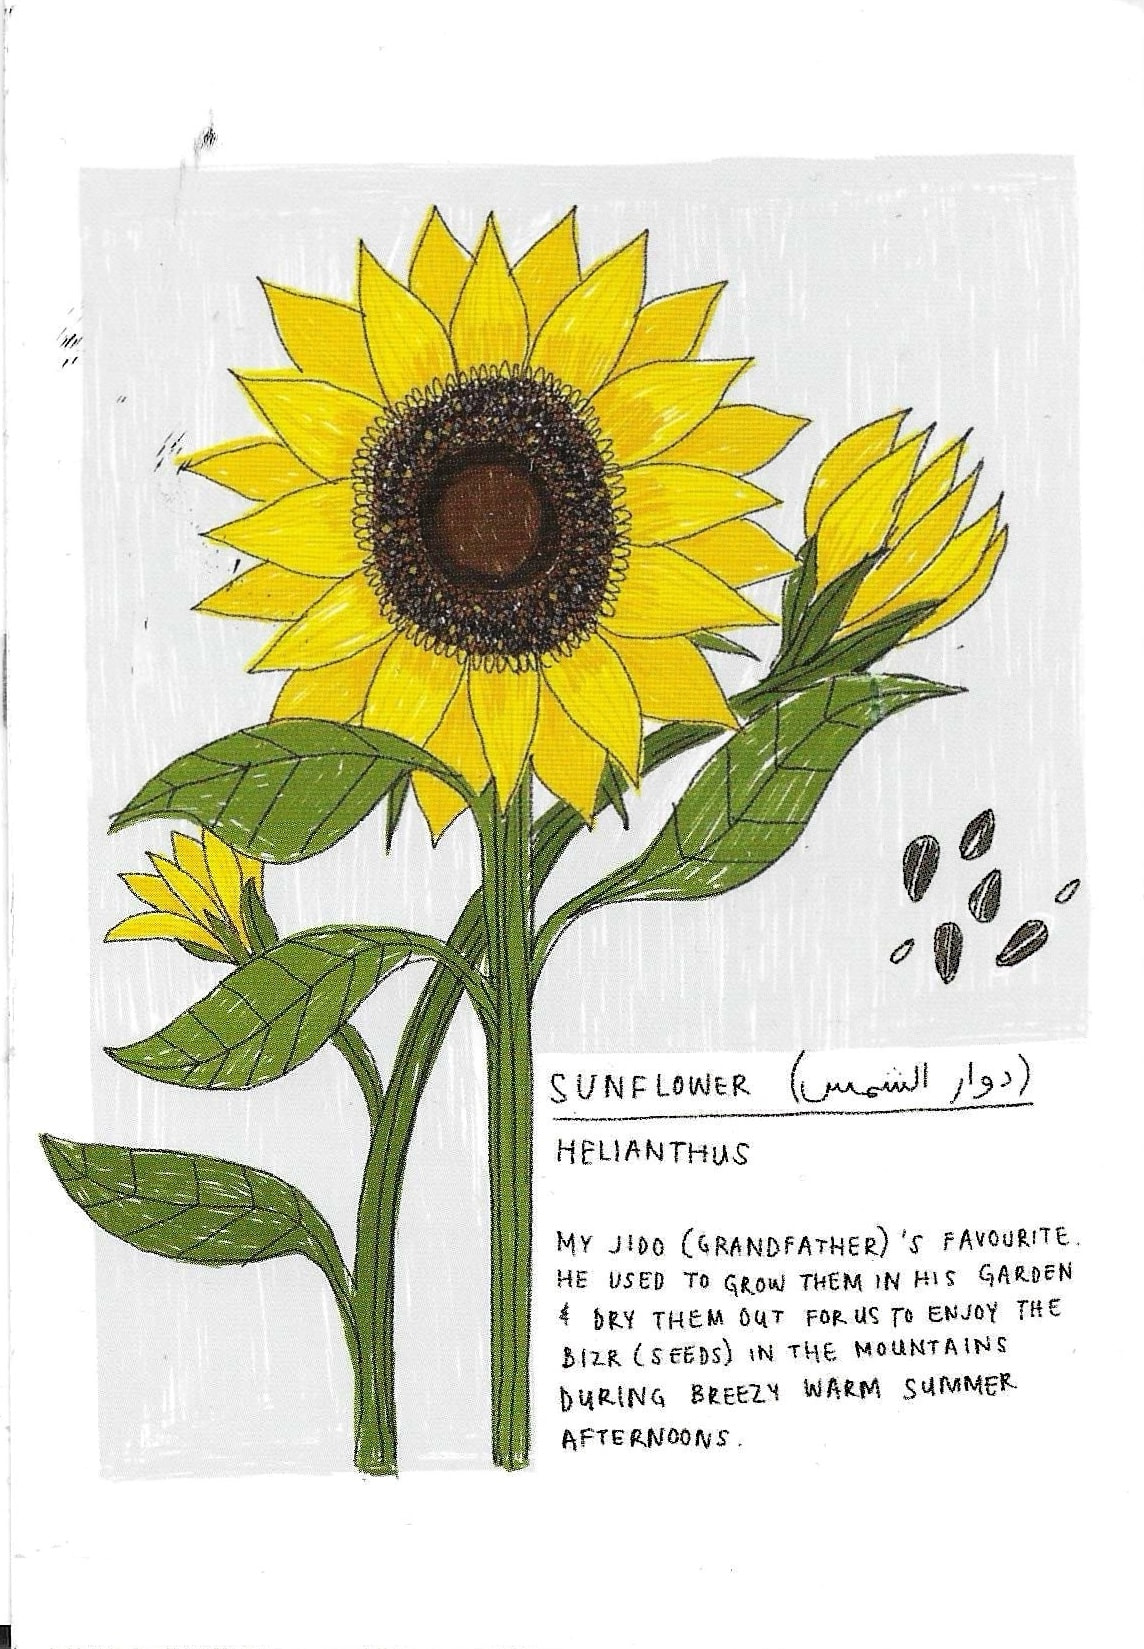 SUNFLOWER (دوار الشمس)
HELIANTHUS
MY JIDO (GRANDFATHER)'S FAVOURITE.
HE USED TO GROW THEM IN HIS GARDEN
& DRY THEM OUT FOR US TO ENJOY THE
BIZR (SEEDS) IN THE MOUNTAINS
DURING BREEZY WARM SUMMER
AFTERNOONS.